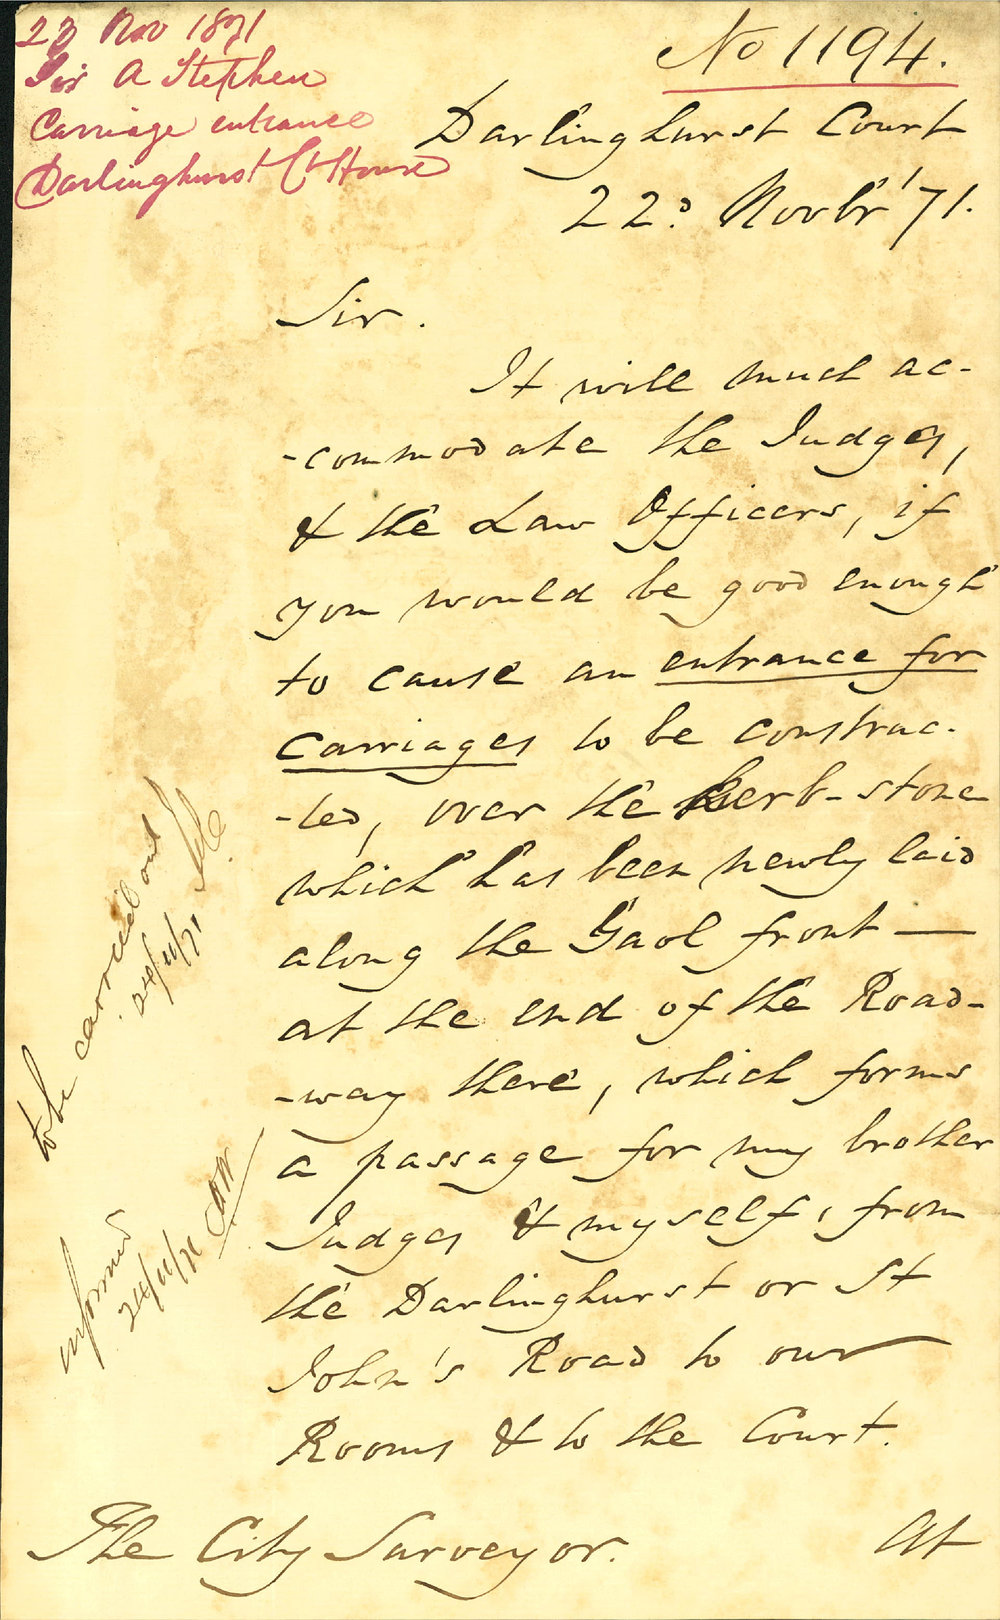 23 Nov 1871
Sir A Stephen
Carriage entrance
Darlinghurst Ct House
No 1194.
Darlinghurst Court
22d. Novbr '71.
Sir.
It will much ac-
-commodate the Judges,
& the Law Officers, if
you would be good enough
to cause an entrance for
Carriages to be construc-
-ted, over the kerb-stone
which has been newly laid
along the Gaol front —
at the end of the Road-
-way there, which forms
a passage for my brother
Judges & myself, from
the Darlinghurst or St
John's Road to our
Rooms & to the Court.
The City Surveyor.
At
to be carried out
24/11/71
informed
24/11/71